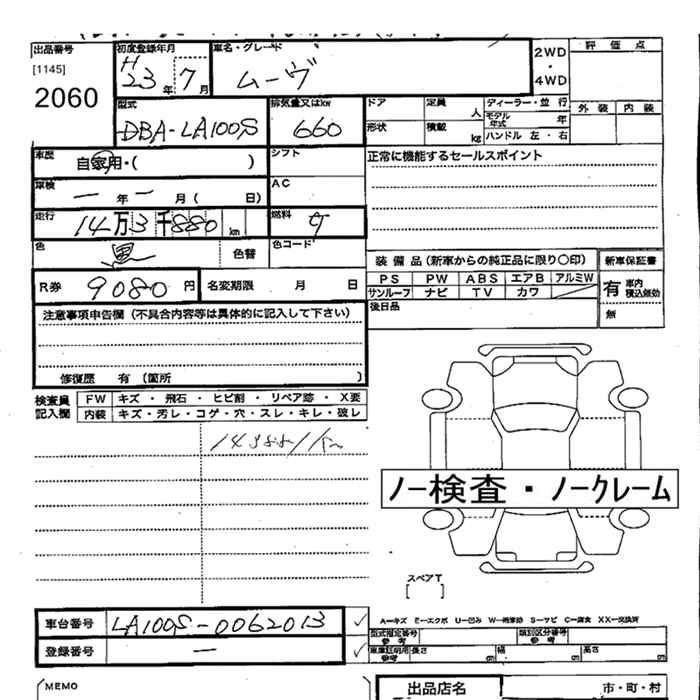 出品番号
[1145]
2060
初度登録年月
H 23年 7月
車名・グレード
ムーヴ
2WD
・
4WD
評価点
外装 内装
型式
DBA-LA100S
排気量又はkw
660
ドア
定員 人
形状
積載 kg
ディーラー・並行
モデル年式 年
ハンドル 左・右
車歴
自家用・( )
シフト
車検
一年一月( 日)
AC
走行
14万3千880km
燃料
ガ
色
黒
色替
色コード
R券
9080円
名変期限 月 日
正常に機能するセールスポイント
装備品(新車からの純正品に限り〇印)
PS PW ABS エアB アルミW
サンルーフ ナビ TV カワ
後日品
新車保証書
有 車内積込無効
無
注意事項申告欄(不具合内容等は具体的に記入して下さい)
修復歴 有(箇所 )
検査員記入欄
FW キズ・飛石・ヒビ割・リペア跡・X要
内装 キズ・汚レ・コゲ・穴・スレ・キレ・破レ
ノー検査・ノークレーム
スペアT
[ ]
車台番号
LA100S-0062013
登録番号
―
A=キズ E=エクボ U=凹み W=補修跡 S=サビ C=腐食 XX=交換済
型式指定番号 参考
類別区分番号 参考
車庫証明用 参考 長さ 幅 高さ
MEMO
出品店名
市・町・村